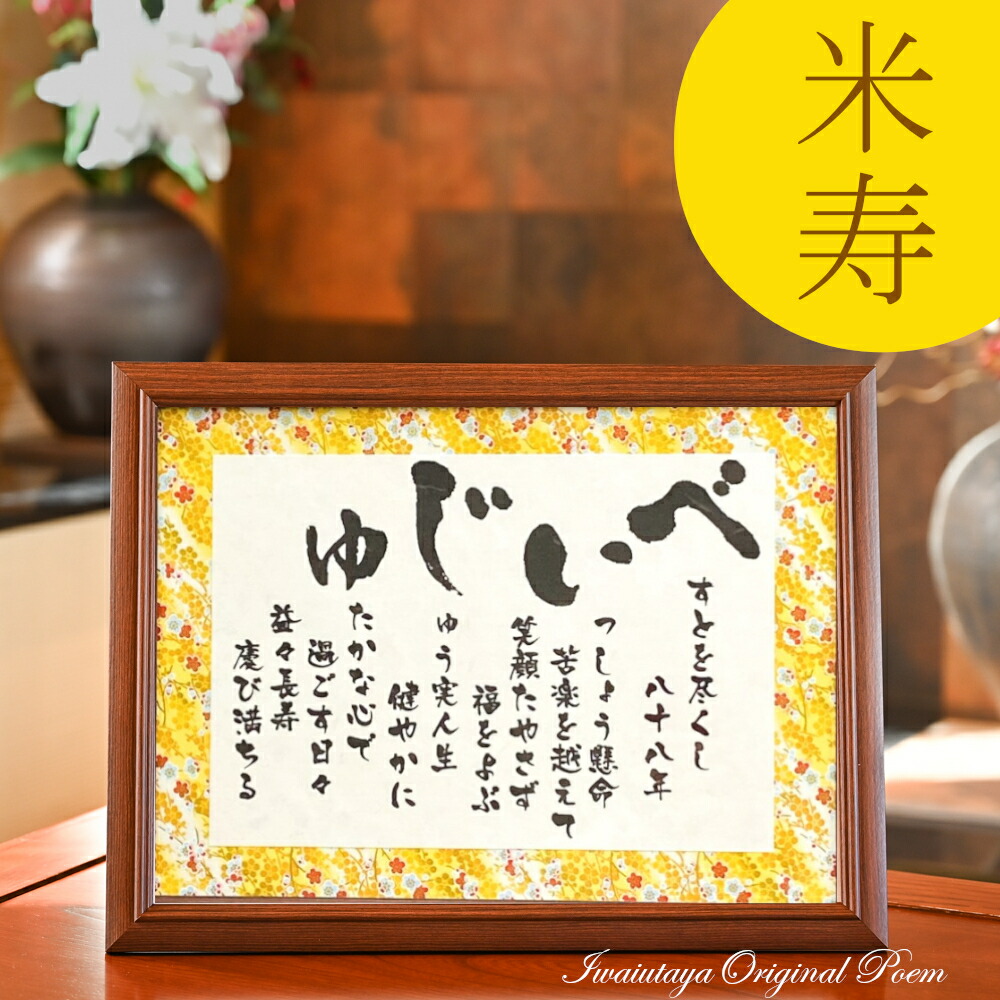 米寿
べいじゅ
すとを尽くし
八十八年
っしょう懸命
苦楽を越えて
笑顔たやさず
福をよぶ
ゆう実人生
健やかに
たかな心で
過ごす日々
益々長寿
慶び満ちる
Iwaiutaya Original Poem